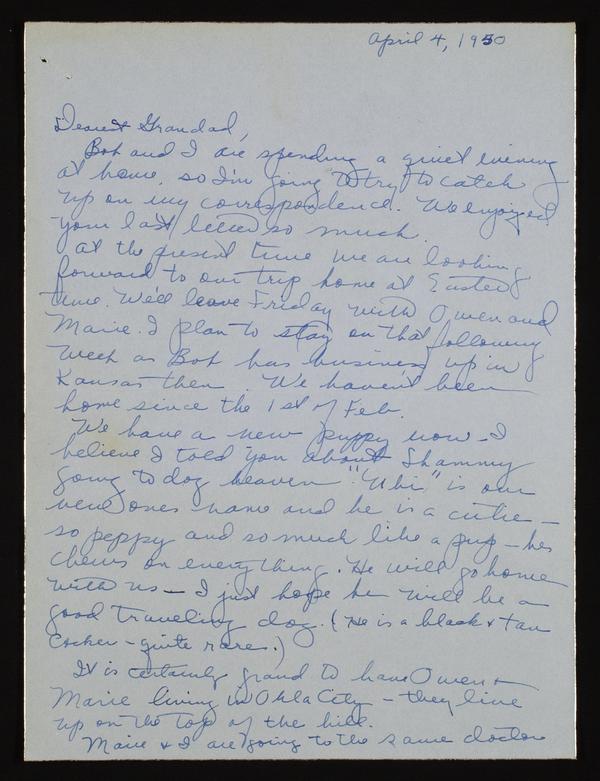 April 4, 1950
Dearest Grandad,
Bob and I are spending a quiet evening
at home, so I'm going to try to catch
up on my correspondence. We enjoyed
your last letter so much.
At the present time we are looking
forward to our trip home at Easter
time. We'll leave Friday with Owen and
Marie. I plan to stay on that following
week as Bob has business up in
Kansas then. We haven't been
home since the 1st of Feb.
We have a new puppy now - I
believe I told you about Shammy
going to dog heaven. "Ubi" is our
new ones name and he is a cutie -
so peppy and so much like a pup - he
chews on everything. He will go home
with us - I just hope he will be a
good traveling dog. (He is a black & tan
Cocker - quite rare.)
It is certainly grand to have Owen &
Marie living in Okla City - they live
up on the top of the hill.
Marie & I are going to the same doctor